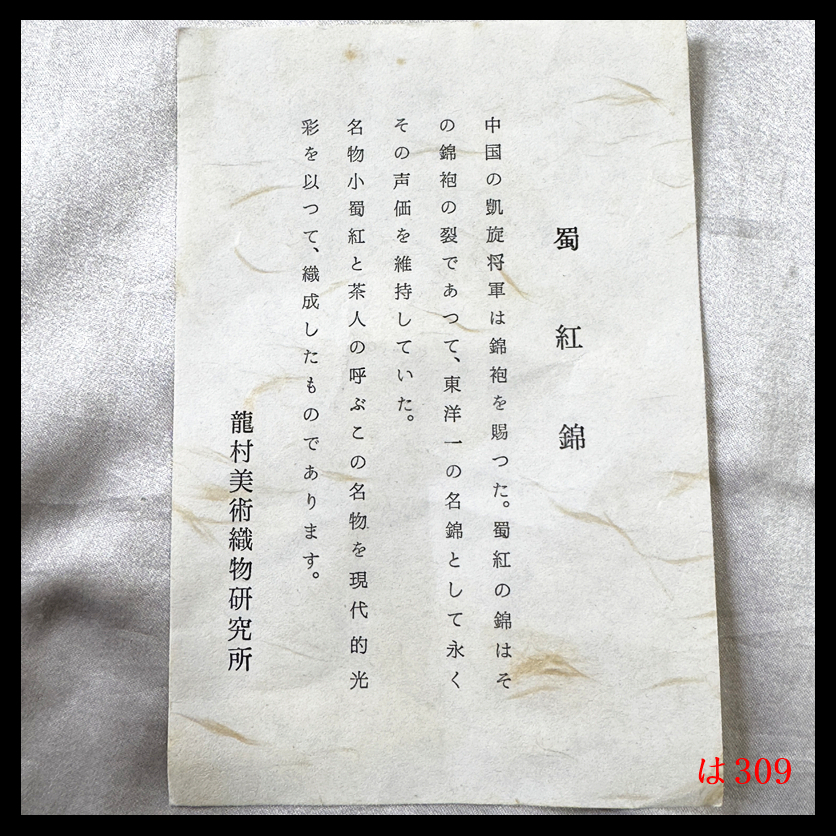 蜀紅錦
中国の凱旋将軍は錦袍を賜つた。蜀紅の錦はそ
の錦袍の裂であつて、東洋一の名錦として永く
その声価を維持していた。
名物小蜀紅と茶人の呼ぶこの名物を現代的光
彩を以つて、織成したものであります。
龍村美術織物研究所
は309